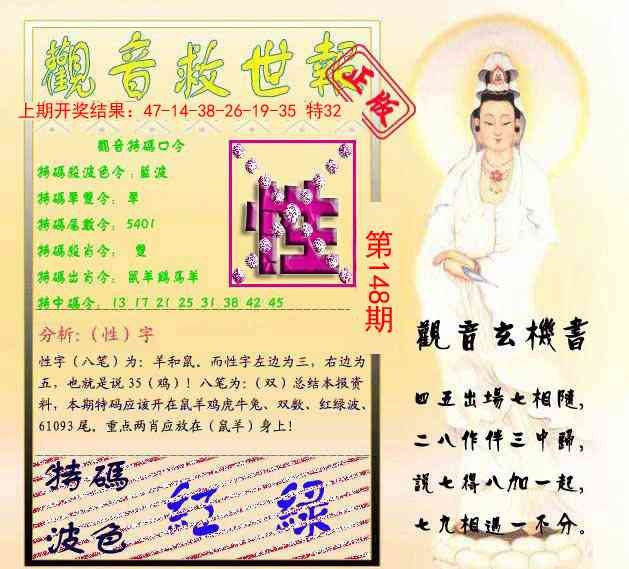 觀音救世報
正版
上期开奖结果：47-14-38-26-19-35 特32
觀音特碼口令
特碼殺波色令：藍波
特碼單雙令： 單
特碼尾數令： 5401
特碼殺肖令： 雙
特碼出肖令： 鼠羊鷄馬羊
特中碼令： 13 17 21 25 31 38 42 45
性
第148期
分析:（性）字
性字（八笔）为：羊和鼠。而性字左边为三，右边为
五，也就是说 35（鸡）！八笔为：（双）总结本报资
料，本期特码应该开在鼠羊鸡虎牛兔、双数、红绿波、
61093 尾。重点两肖应放在（鼠羊）身上！
特碼
波色
紅 綠
觀音玄機書
四五出場七相隨，
二八作伴三中歸，
說七得八加一起，
七九相遇一不分。